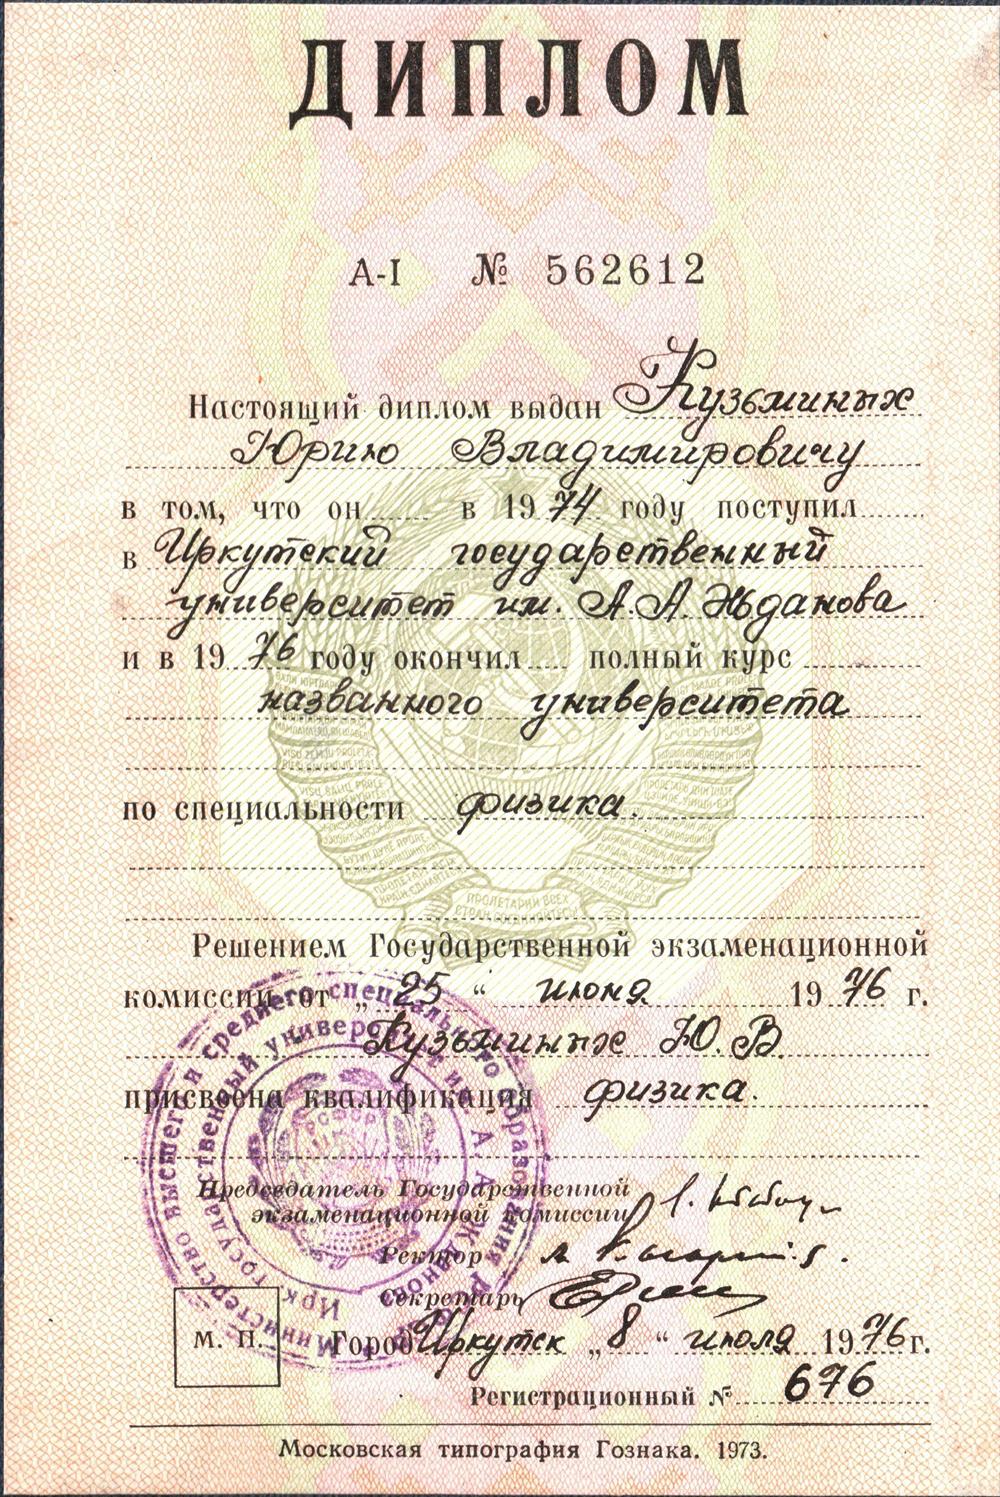 ДИПЛОМ
А-I № 562612
Настоящий диплом выдан Кузьминых
Юрию Владимировичу
в том, что он в 1974 году поступил
в Иркутский государственный
университет им. А. А. Жданова
и в 1976 году окончил полный курс
названного университета
по специальности физика.
ПРОЛЕТАРИИ ВСЕХ
СТРАН, СОЕДИНЯЙТЕСЬ!
Решением Государственной экзаменационной
комиссии от „25“ июня 1976 г.
Кузьминых Ю. В.
присвоена квалификация физика.
Председатель Государственной
экзаменационной комиссии
Ректор
Секретарь
М. П. Город Иркутск „8“ июля 1976 г.
Регистрационный № 676
Московская типография Гознака. 1973.
Министерство высшего и среднего специального образования РСФСР
Иркутский государственный университет им. А. А. Жданова
РСФСР